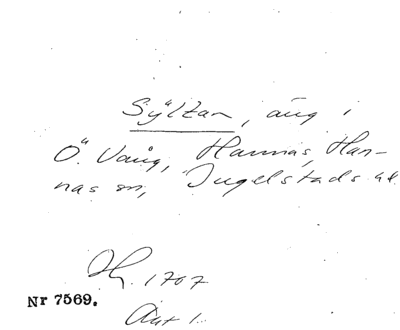 Syltan, äng i
Ö. Vång, Hannas, Han-
nas sn, Ingelstads hd
Hg. 1707
Nr 7569.
Akt 1.